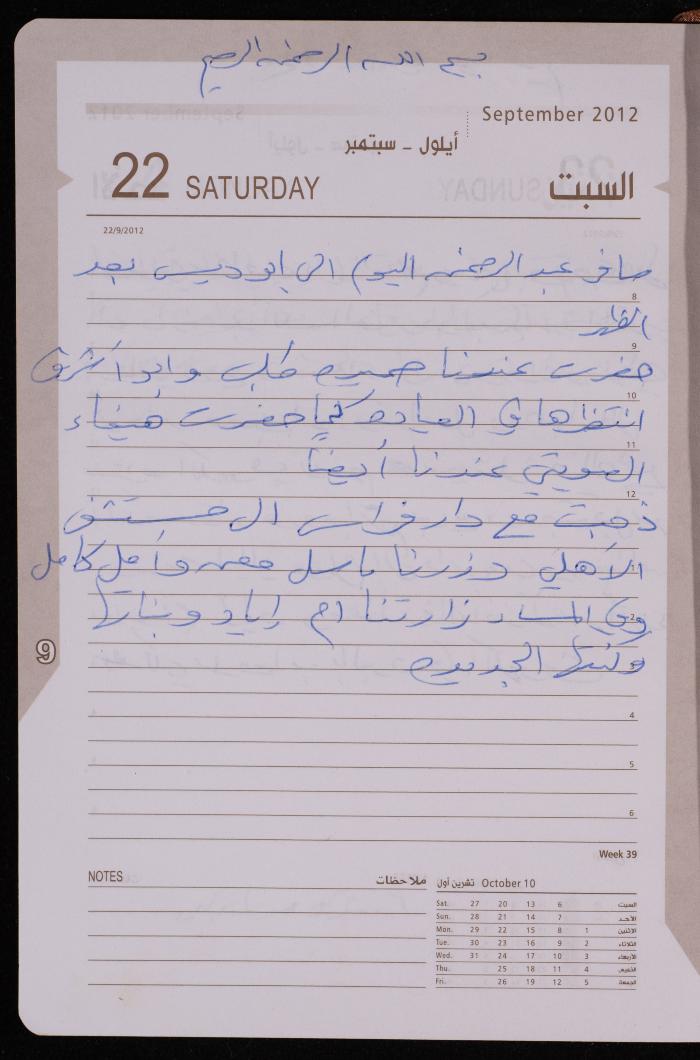 بسم الله الرحمن الرحيم
September 2012
أيلول - سبتمبر
22 SATURDAY السبت
22/9/2012
سافر عبد الرحمن اليوم الى ابو ديس بعد
8
الظهر
9
حضرت عندنا حميده طلب وابو أشرق
10
انتظرها في العياده كما حضرت هيفاء
11
العويتي عندنا أيضاً
12
ذهبت مع دار فراس الى مستشفى
الأهلي وزرنا باسل معهم وأمل كامل
1
وفي المساء زارتنا ام إياد وبناتها
2
وكنتها الجديده
9
4
5
6
Week 39
NOTES ملاحظات
October 10 تشرين أول
Sat. 27 20 13 6 السبت
Sun. 28 21 14 7 الأحد
Mon. 29 22 15 8 1 الإثنين
Tue. 30 23 16 9 2 الثلاثاء
Wed. 31 24 17 10 3 الأربعاء
Thu. 25 18 11 4 الخميس
Fri. 26 19 12 5 الجمعة